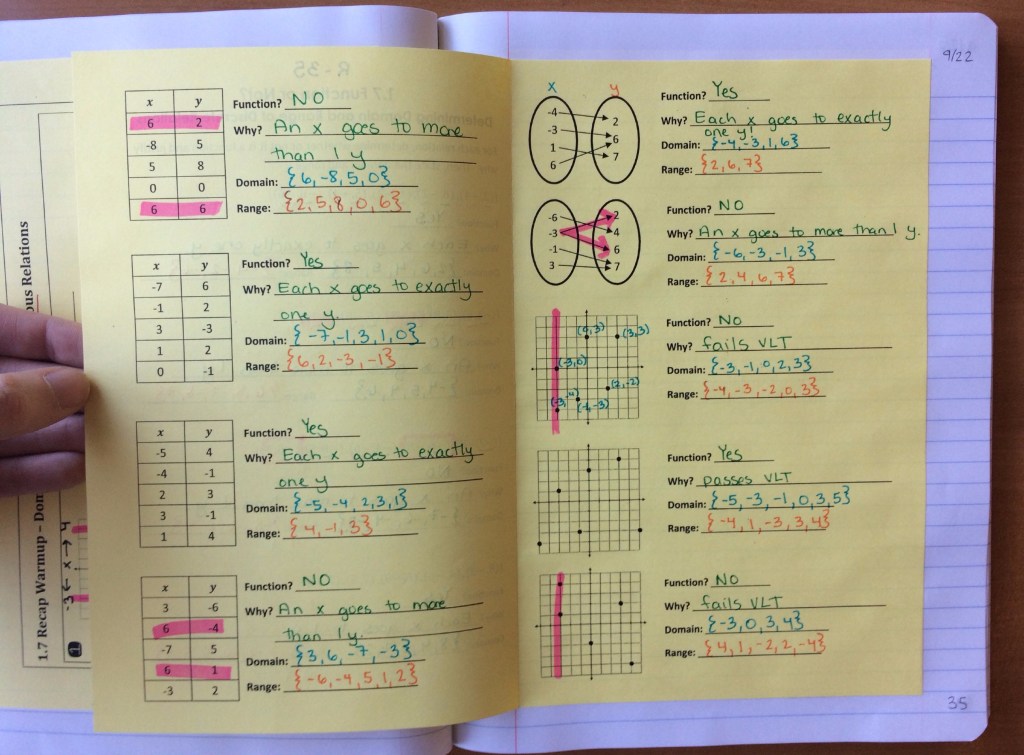 x y
6 2
-8 5
5 8
0 0
6 6
Function? NO
Why? An x goes to more
than 1 y
Domain: {6, -8, 5, 0}
Range: {2, 5, 8, 0, 6}
x y
-7 6
-1 2
3 -3
1 2
0 -1
Function? Yes
Why? Each x goes to exactly
one y.
Domain: {-7, -1, 3, 1, 0}
Range: {6, 2, -3, -1}
x y
-5 4
-4 -1
2 3
3 -1
1 4
Function? Yes
Why? Each x goes to exactly
one y
Domain: {-5, -4, 2, 3, 1}
Range: {4, -1, 3}
x y
3 -6
6 -4
-7 5
6 1
-3 2
Function? NO
Why? An x goes to more
than 1 y.
Domain: {3, 6, -7, -3}
Range: {-6, -4, 5, 1, 2}
9/22
x y
-4 2
-3 6
1 7
6
Function? Yes
Why? Each x goes to exactly
one y!
Domain: {-4, -3, 1, 6}
Range: {2, 6, 7}
-6 2
-3 4
-1 6
3 7
Function? NO
Why? An x goes to more than 1 y.
Domain: {-6, -3, -1, 3}
Range: {2, 4, 6, 7}
(0,3) (3,3)
(-3,0)
(2,-2)
(-3,-4) (-1,-3)
Function? No
Why? fails VLT
Domain: {-3, -1, 0, 2, 3}
Range: {-4, -3, -2, 0, 3}
Function? Yes
Why? passes VLT
Domain: {-5, -3, -1, 0, 3, 5}
Range: {-4, 1, -3, 3, 4}
Function? NO
Why? fails VLT
Domain: {-3, 0, 3, 4}
Range: {4, 1, -2, 2, -4}
35
1.7 Recap Warmup – Dom
ous Relations
-3 ← x → 4
1